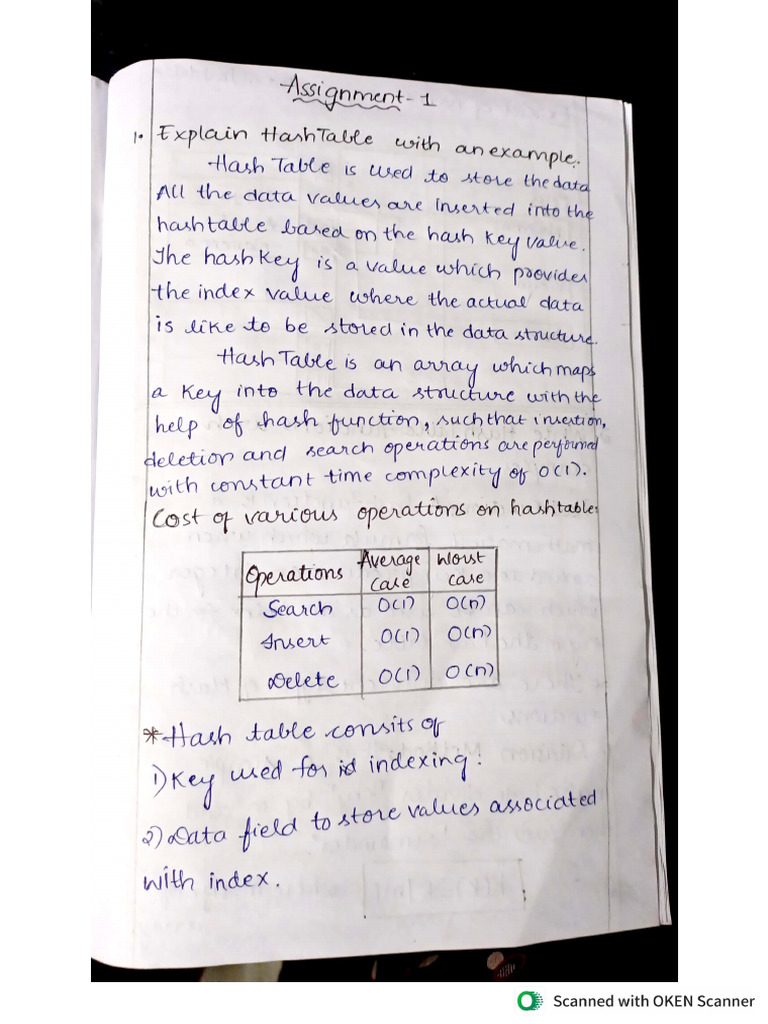 Assignment-1
1. Explain HashTable with an example.
Hash Table is used to store the data
All the data values are inserted into the
hashtable based on the hash key value.
The hashkey is a value which provides
the index value where the actual data
is like to be stored in the data structure.
Hash Table is an array which maps
a key into the data structure with the
help of hash function, such that insertion,
deletion and search operations are performed
with constant time complexity of O(1).
Cost of various operations on hashtable:
Operations Average case Worst case
Search O(1) O(n)
Insert O(1) O(n)
Delete O(1) O(n)
*Hash table consits of
1) Key used for indexing:
2) Data field to store values associated
with index.
Scanned with OKEN Scanner